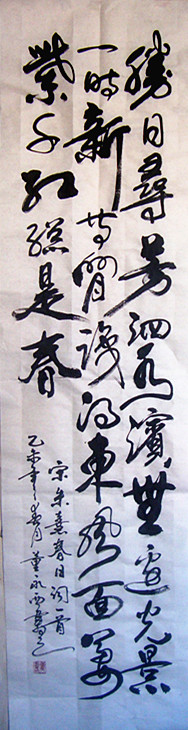 勝日尋芳泗水濱無邊光景
一時新等閒識得東風面萬
紫千紅總是春
宋朱熹春日詞一首
年春月董永西書